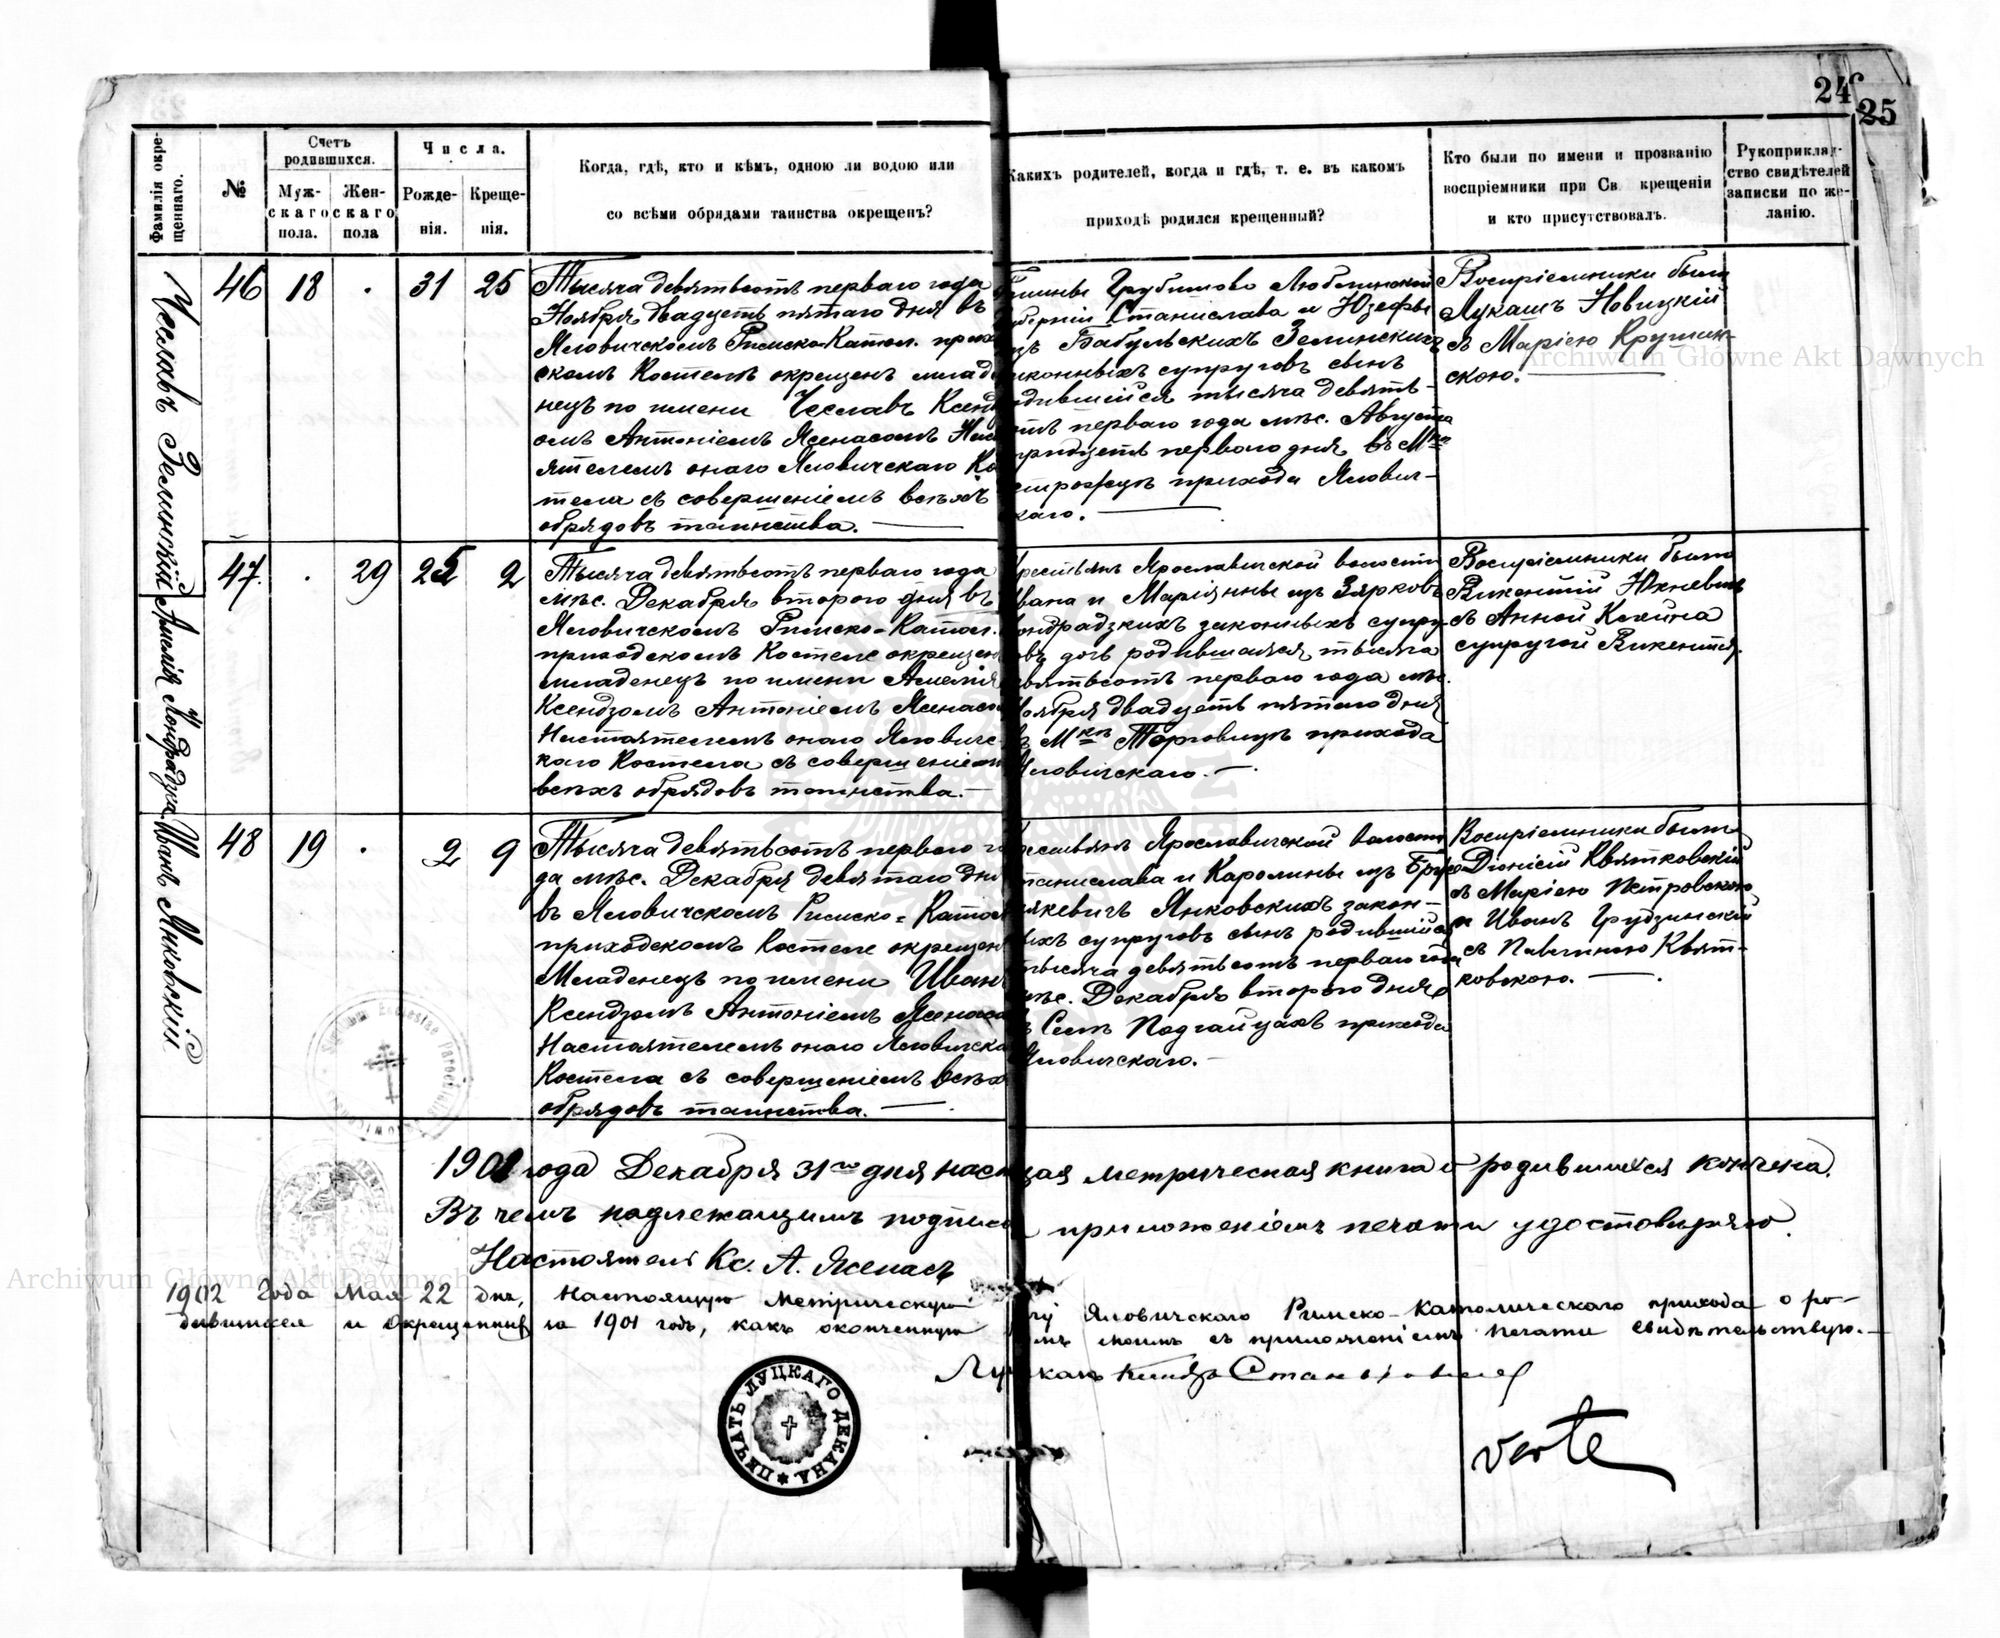 24
25
Фамилія окре-
щеннаго.
№
Счетъ
родившихся.
Муж-
скаго
пола.
Жен-
скаго
пола
Числа.
Рожде-
нія.
Креще-
нія.
Когда, гдѣ, кто и кѣмъ, одною ли водою или
со всѣми обрядами таинства окрещенъ?
Какихъ родителей, когда и гдѣ, т. е. въ какомъ
приходѣ родился крещенный?
Кто были по имени и прозванію
воспріемники при Св. крещеніи
и кто присутствовалъ.
Рукоприклад-
ство свидѣтелей
записки по же-
ланію.
Чеславъ Зелинскій
46 18 . 31 25
Тысяча девятьсотъ перваго года
Ноября двадцать пятаго дня въ
Яловичскомъ Римско-Катол. приход
скомъ Костелѣ окрещенъ млад
нецъ по имени Чеславъ Ксенд
омъ Антоніемъ Ясенасомъ Нас
ятелемъ онаго Яловичскаго Ко
тела съ совершеніемъ всѣхъ
обрядовъ таинства.
Гмины Грубешово Люблинской
губерніи Станислава и Юзефы
изъ Бабульскихъ Зелинскихъ
законныхъ супруговъ сынъ
родившійся тысяча девять-
сотъ перваго года мѣс. Августа
тридцать перваго дня въ Мкѣ
Острожцѣ прихода Ялович-
скаго.
Воспріемники были
Лукашъ Новицкій
съ Маріею Крушин-
скою.
Амелія Кондрадзка
47. . 29 25 2
Тысяча девятьсотъ перваго года
мѣс. Декабря второго дня въ
Яловичскомъ Римско-Катол.
приходскомъ Костеле окрещен
младенецъ по имени Амелія
Ксендзомъ Антоніемъ Ясенасо
Настоятелемъ онаго Яловичс-
каго Костела съ совершеніем
всѣхъ обрядовъ таинства.
Крестьянъ Ярославичской волости
Ивана и Маріянны изъ Зярковъ
Кондрадзкихъ законныхъ супру-
говъ дочь родившаяся тысяча
девятьсотъ перваго года мѣс.
Ноября двадцать пятаго дня
въ Мкѣ Торговицѣ прихода
Яловичскаго.
Воспріемники были
Викентій Юхневичъ
съ Анной
супругой Викентія.
Иванъ Янковскій
48 19 . 2 9
Тысяча девятьсотъ перваго го
да мѣс. Декабря девятаго дня
въ Яловичскомъ Римско-Катол
приходскомъ Костеле окрещен
Младенецъ по имени Иван
Ксендзомъ Антоніемъ Ясенасо
Настоятелемъ онаго Яловичска
Костела съ совершеніемъ всѣх
обрядовъ таинства.
Крестьянъ Ярославичской волости
Станислава и Каролины изъ
Янковскихъ закон-
ныхъ супруговъ сынъ родившійся
тысяча девятьсотъ перваго года
мѣс. Декабря второго дня
въ Селѣ Подгайцахъ прихода
Яловичскаго.
Воспріемники были
Діонисій Квятковскій
съ Маріею Петровскою
и Иванъ Грудзинскій
съ Павлиною Квят-
ковскою.
1901 года Декабря 31го дня насущая метрическая книга о родившихся кончена.
Въ чемъ надлежащимъ подписо приложеніемъ печати удостовѣряю.
Настоятель Кс. А. Ясенасъ
1902 года Мая 22 дня, настоящую метрическую гу Яловичскаго Римско-Католическаго прихода о ро-
дившихся и окрещенныхъ за 1901 годъ, какъ оконченную моимъ съ приложеніемъ печати свидѣтельствую.
verte
ПЕЧАТЬ ЛУЦКАГО ДЕКАНА
Archiwum Główne Akt Dawnych
Archiwum Główne Akt Dawnych